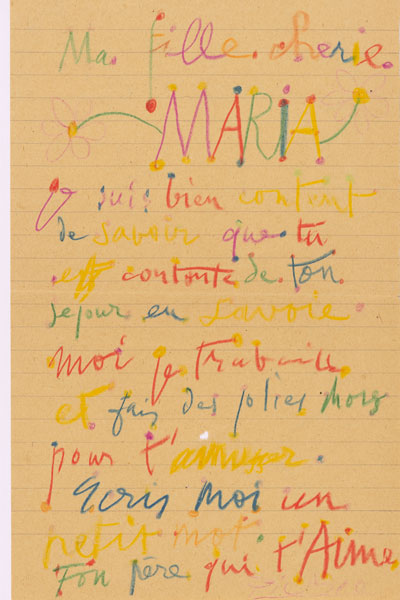 Ma fille cherie.
MARIA
Je suis bien content
de savoir que tu
est contente de ton
sejour en Savoie
moi je travaille
et fais des jolies
pour t'amuser.
Ecris moi un
petit mot.
Ton père qui t'Aime